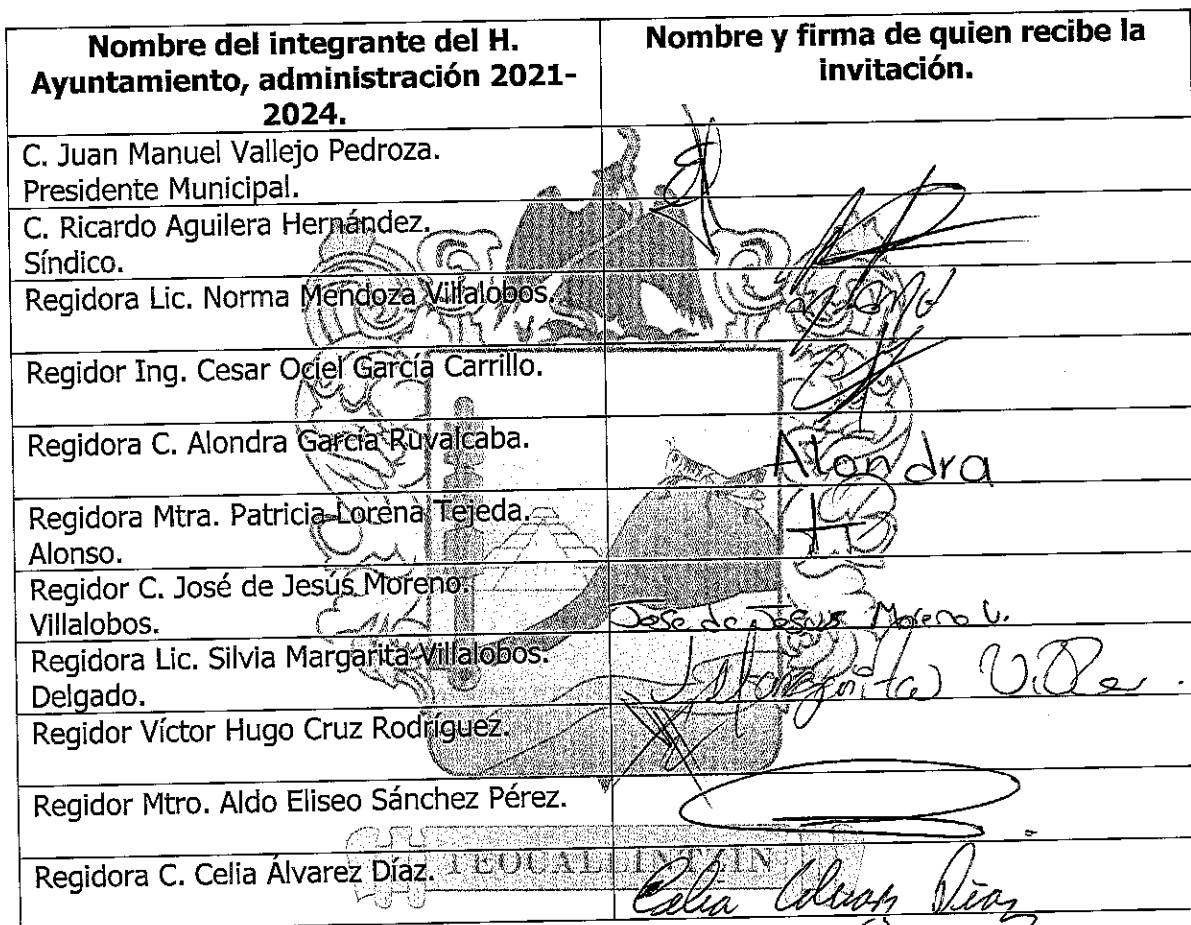 Nombre del integrante del H. Ayuntamiento, administración 2021-2024.
Nombre y firma de quien recibe la invitación.
C. Juan Manuel Vallejo Pedroza.
Presidente Municipal.
C. Ricardo Aguilera Hernández.
Síndico.
Regidora Lic. Norma Mendoza Villalobos.
Regidor Ing. Cesar Ociel García Carrillo.
Regidora C. Alondra García Ruvalcaba.
Alondra
Regidora Mtra. Patricia Lorena Tejeda.
Alonso.
Regidor C. José de Jesús Moreno.
Villalobos.
Jose de Jesus Moreno V.
Regidora Lic. Silvia Margarita Villalobos.
Delgado.
Margarita
Regidor Víctor Hugo Cruz Rodríguez.
Regidor Mtro. Aldo Eliseo Sánchez Pérez.
Regidora C. Celia Álvarez Díaz.
Celia Díaz
TEQUALTINTZIN